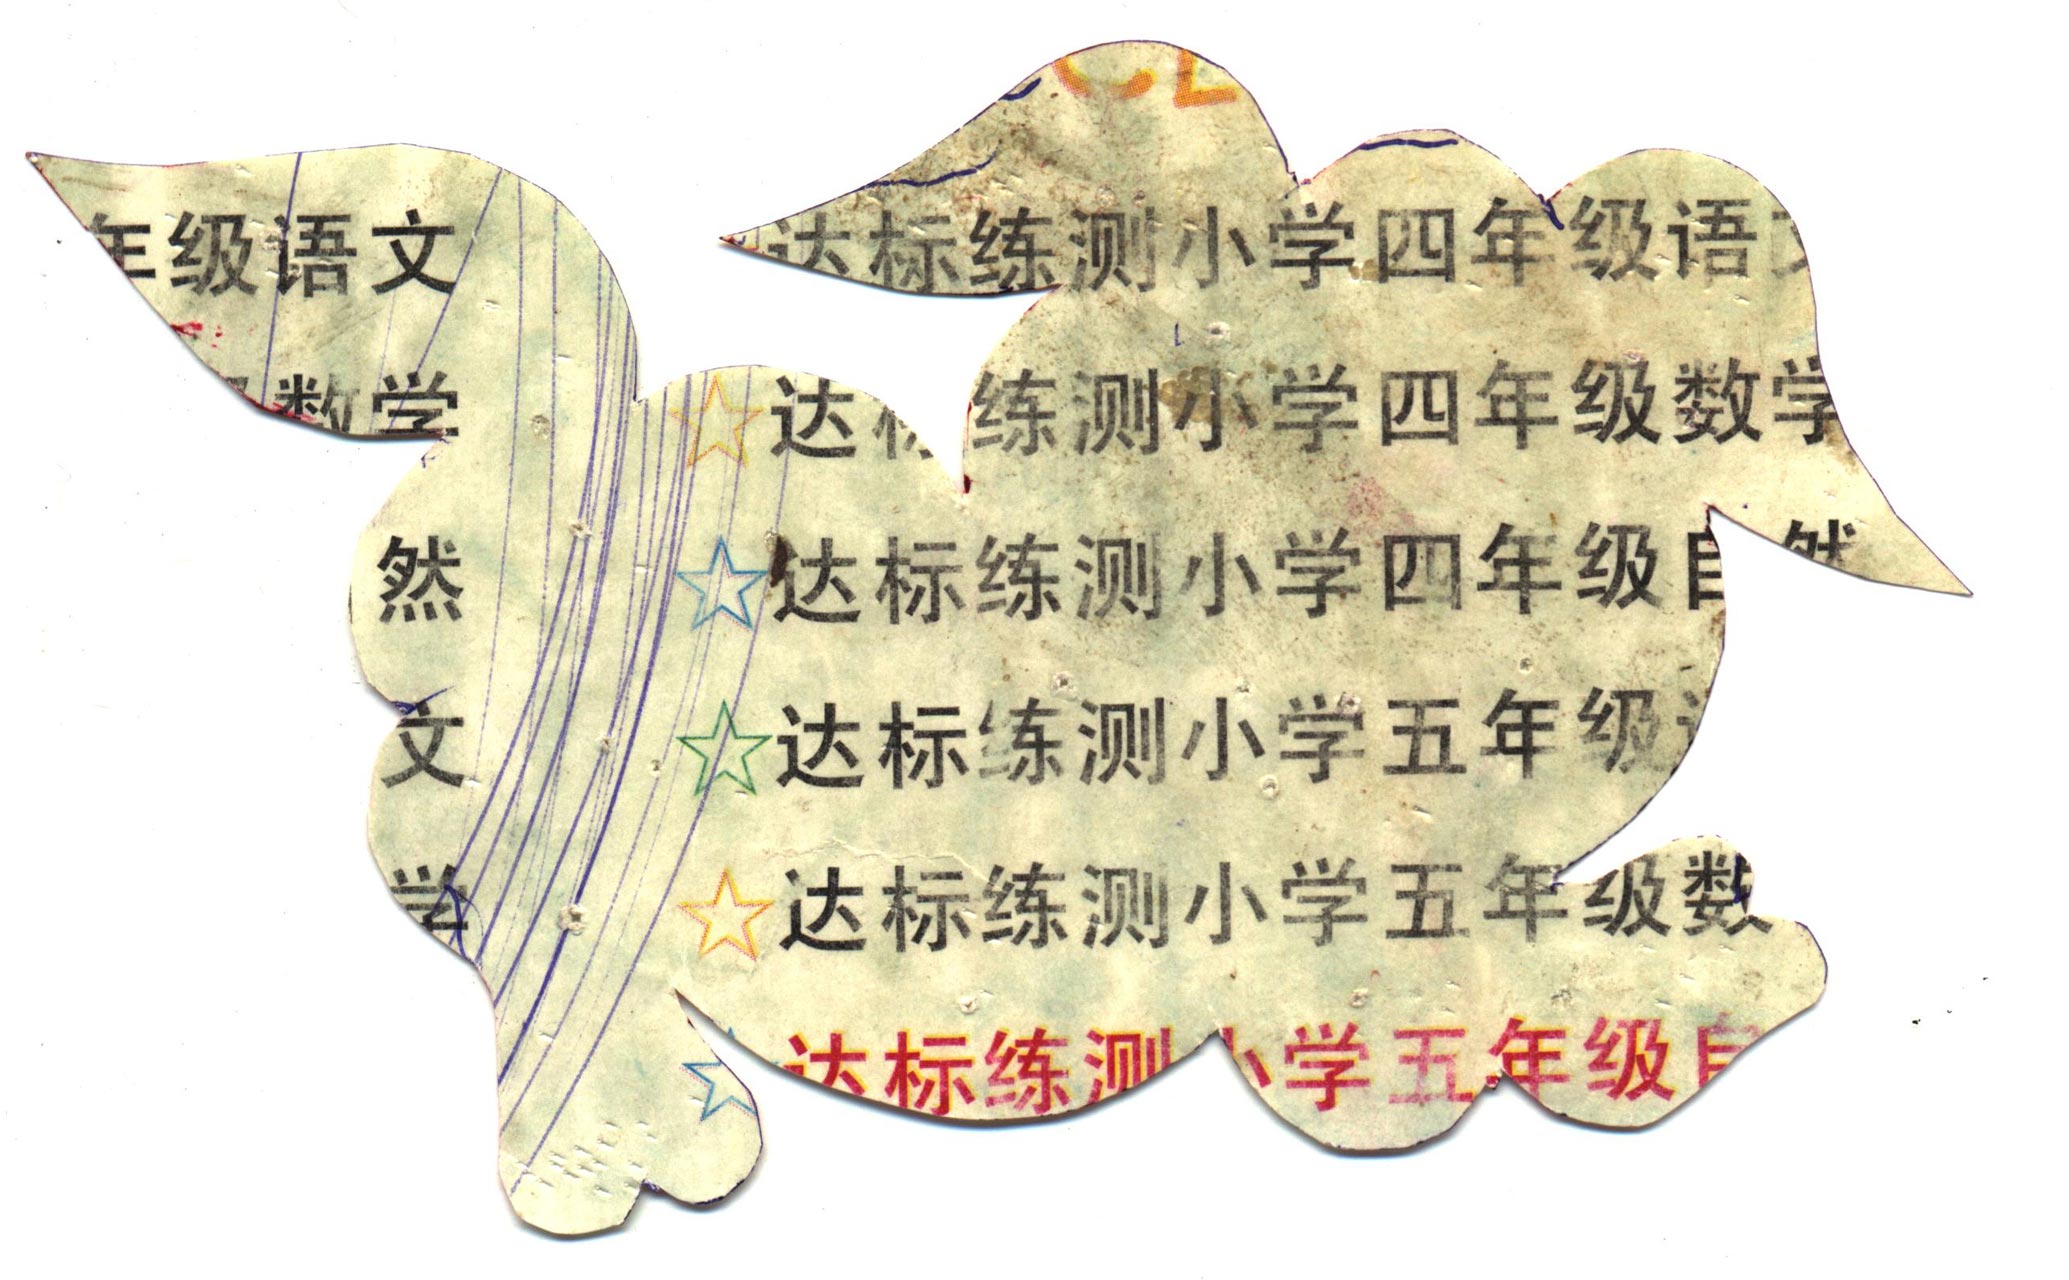 年级语文 达标练测小学四年级语文
数学 ☆达标练测小学四年级数学
然 ☆达标练测小学四年级自然
文 ☆达标练测小学五年级
学 ☆达标练测小学五年级数
☆达标练测小学五年级自